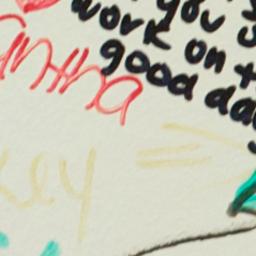 you
work on
good da
antha
key =